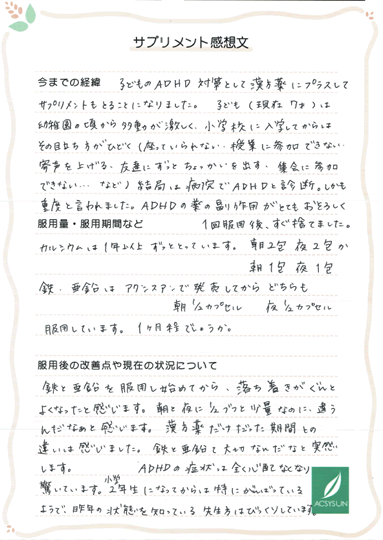 サプリメント感想文
今までの経緯 子どものADHD対策として漢方薬にプラスして
サプリメントもとることになりました。子ども(現在7才)は
幼稚園の頃から多動が激しく、小学校に入学してからは
その目立ち方がひどく(座っていられない・授業に参加できない・
奇声を上げる、友達にずっとちょっかいを出す、集会に参加
できない… など)結局は病院でADHDと診断。しかも
重度と言われました。ADHDの薬の副作用がとてもおそろしく
服用量・服用期間など 1回服用後、すぐ捨てました。
カルシウムは1年以上ずっととっています。朝2包 夜2包か
朝1包 夜1包
鉄、亜鉛は アクシスアンで発売してから どちらも
朝1/2カプセル 夜1/2カプセル
服用しています。1ヶ月程でしょうか。
服用後の改善点や現在の状況について
鉄と亜鉛を服用し始めてから、落ち着きがぐんと
よくなったと感じます。朝と夜に1/2ずつと少量なのに、違う
んだなぁと感じます。漢方薬だけだった期間との
違いは感じました。鉄と亜鉛て大切なんだなと実感
します。 ADHDの症状は全く心配なくなり
驚いています。小学2年生になってからは特にがんばっている
ようで、昨年の状態を知っている先生方はびっくりしています。
ACSYSUN